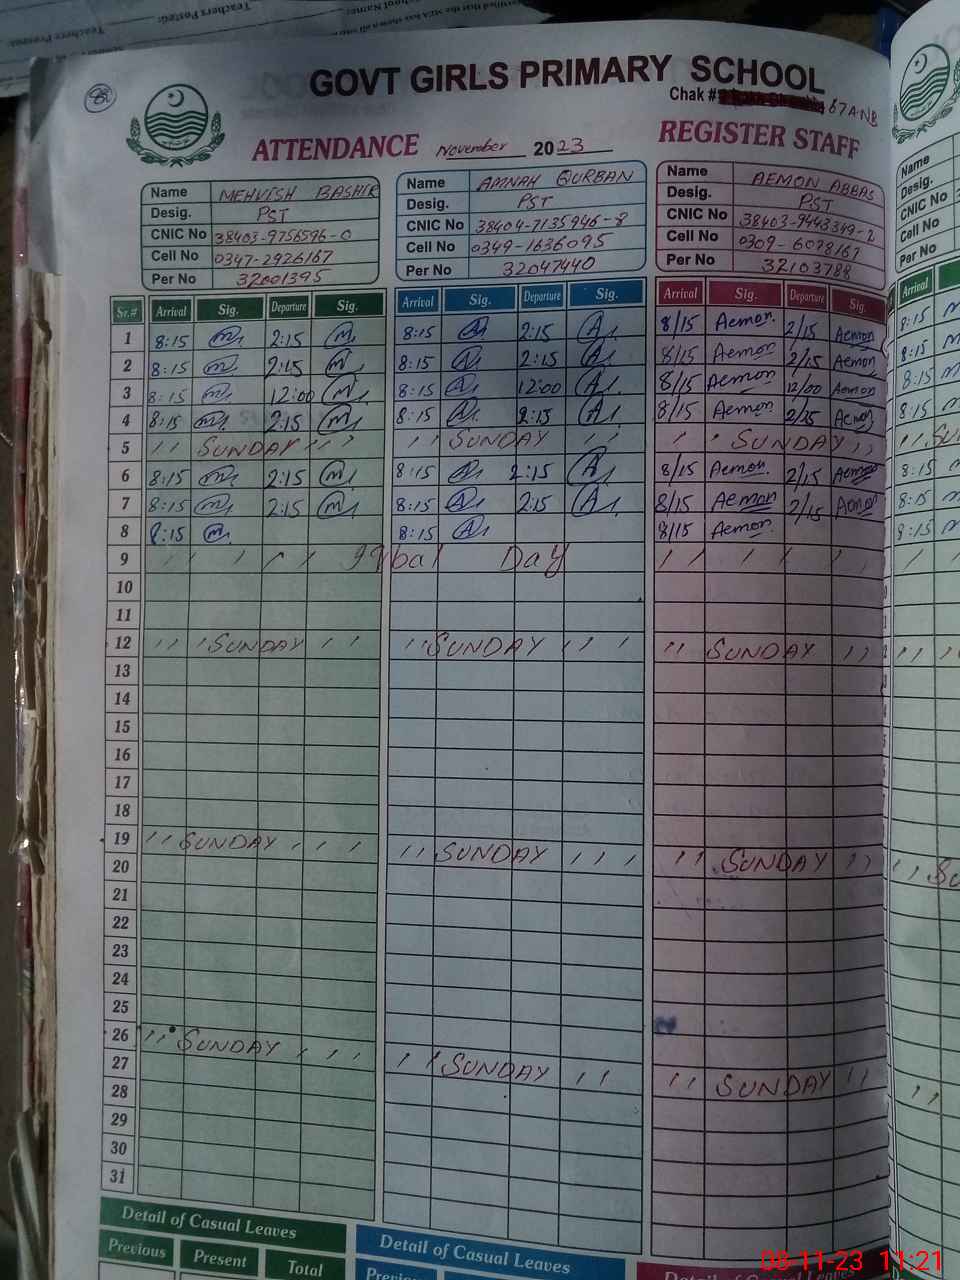 GOVT GIRLS PRIMARY SCHOOL
Chak # 67ANB
ATTENDANCE November 2023 REGISTER STAFF
Name MEHVISH BASHIR
Desig. PST
CNIC No 38403-9756596-0
Cell No 0347-2926167
Per No 32001395
Name AMNAH QURBAN
Desig. PST
CNIC No 38404-7135946-8
Cell No 0349-1636095
Per No 32047440
Name AEMON ABBAS
Desig. PST
CNIC No 38403-9443349-2
Cell No 0309-6078167
Per No 32103788
Name
Desig.
CNIC No
Cell No
Per No
Sr.# Arrival Sig. Departure Sig. Arrival Sig. Departure Sig. Arrival Sig. Departure Sig. Arrival
1 8:15 m 2:15 m 8:15 A 2:15 A 8/15 Aemon 2/15 Aemon 8:15
2 8:15 m 2:15 m 8:15 A 2:15 A 8/15 Aemon 2/15 Aemon 8:15
3 8:15 m 12:00 m 8:15 A 12:00 A 8/15 Aemon 12/00 Aemon 8:15
4 8:15 m 2:15 m 8:15 A 2:15 A 8/15 Aemon 2/15 Aemon 8:15
5 '' SUNDAY ''' '' SUNDAY '' '' SUNDAY '' '' SU
6 8:15 m 2:15 m 8:15 A 2:15 A 8/15 Aemon 2/15 Aemon 8:15
7 8:15 m 2:15 m 8:15 A 2:15 A 8/15 Aemon 2/15 Aemon 8:15
8 8:15 m 8:15 A 8/15 Aemon 8:15
9 ' ' ' ' ' Iqbal Day ' ' ' ' '
10
11
12 ' ' ' SUNDAY ' ' ' '' SUNDAY ' ' ' '' SUNDAY '' ''
13
14
15
16
17
18
19 '' SUNDAY ' ' ' '' SUNDAY ' ' ' '' SUNDAY '' '' SU
20
21
22
23
24
25
26 '' SUNDAY ' ' ' '' SUNDAY '' '' SUNDAY '' ''
27
28
29
30
31
Detail of Casual Leaves
Previous Present Total
Detail of Casual Leaves
08-11-23 11:21